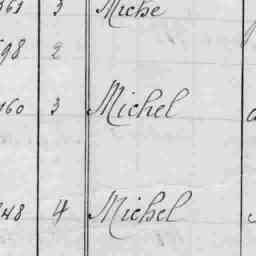 3 Miche
98 2
160 3 Michel
248 4 Michel